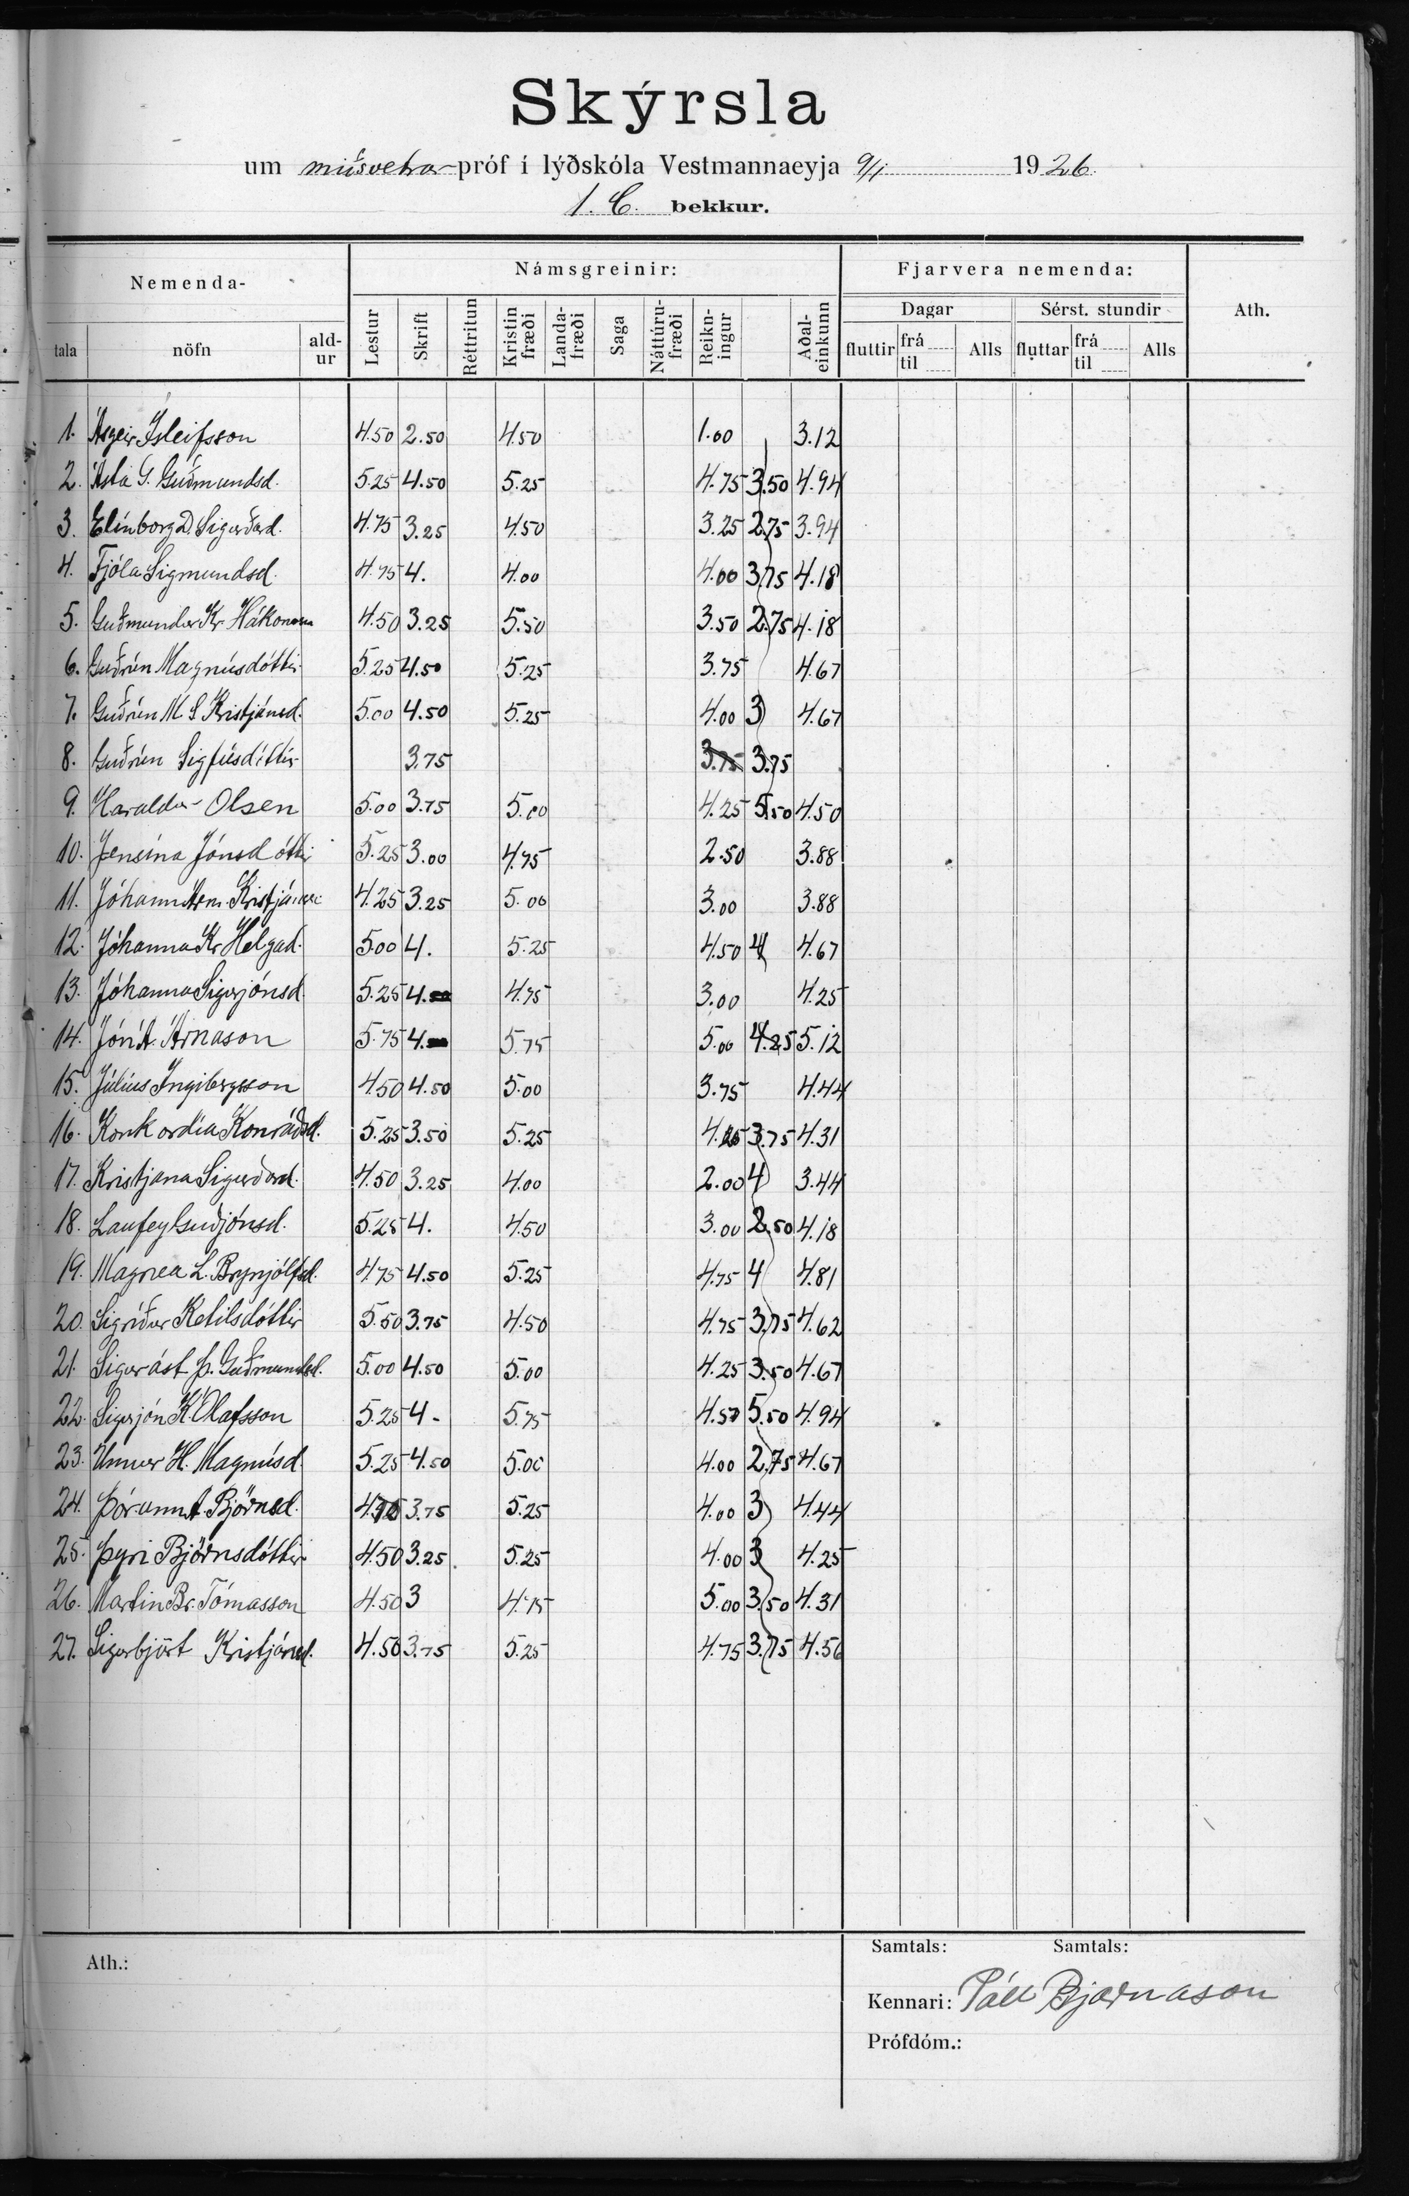 Skýrsla
um miðsvetrar próf í lýðskóla Vestmannaeyja 9/1 1926
1. C. bekkur.
Nemenda- Námsgreinir: Fjarvera nemenda: Ath.
tala nöfn ald-ur Lestur Skrift Réttritun Kristin fræði Landa-fræði Saga Náttúru-fræði Reikn-ingur Aðal-einkunn Dagar Sérst. stundir
fluttir frá til Alls fluttar frá til Alls
1. Ásgeir Ísleifsson 4.50 2.50 4.50 1.00 3.12
2. Ásta G. Guðmundsd. 5.25 4.50 5.25 4.75 3.50 4.94
3. Elínborg D. Sigurðard. 4.75 3.25 4.50 3.25 2.75 3.94
4. Fjóla Sigmundsd. 4.75 4. 4.00 4.00 3.75 4.18
5. Guðmundur Kr. Hákonarson 4.50 3.25 5.50 3.50 2.75 4.18
6. Guðrún Magnúsdóttir 5.25 4.50 5.25 3.75 4.67
7. Guðrún M. S. Kristjánsd. 5.00 4.50 5.25 4.00 3 4.67
8. Guðrún Sigfúsdóttir 3.75 3.75 3.75
9. Haraldur Olsen 5.00 3.75 5.00 4.25 5.50 4.50
10. Jensína Jónsdóttir 5.25 3.00 4.75 2.50 3.88
11. Jóhann Arm. Kristjánss. 4.25 3.25 5.00 3.00 3.88
12. Jóhanna Kr. Helgad. 5.00 4. 5.25 4.50 4 4.67
13. Jóhanna Sigurjónsd. 5.25 4. 4.75 3.00 4.25
14. Jón Á. Árnason 5.75 4. 5.75 5.00 4.25 5.12
15. Júlíus Ingibergsson 4.50 4.50 5.00 3.75 4.44
16. Konkordía Konráðsd. 5.25 3.50 5.25 4.25 3.75 4.31
17. Kristjana Sigurðard. 4.50 3.25 4.00 2.00 4 3.44
18. Laufey Guðjónsd. 5.25 4. 4.50 3.00 2.50 4.18
19. Magnea L. Brynjólfsd. 4.75 4.50 5.25 4.75 4 4.81
20. Sigríður Ketilsdóttir 5.50 3.75 4.50 4.75 3.75 4.62
21. Sigurást Þ. Guðmundsd. 5.00 4.50 5.00 4.25 3.50 4.67
22. Sigurjón K. Ólafsson 5.25 4- 5.75 4.50 5.50 4.94
23. Unnur H. Magnúsd. 5.25 4.50 5.00 4.00 2.75 4.67
24. Þórunn A. Björnsd. 4.75 3.75 5.25 4.00 3 4.44
25. Þyri Björnsdóttir 4.50 3.25 5.25 4.00 3 4.25
26. Martin Br. Tómasson 4.50 3 4.75 5.00 3.50 4.31
27. Sigurbjört Kristjánsd. 4.50 3.75 5.25 4.75 3.75 4.56
Samtals: Samtals:
Ath.:
Kennari: Páll Bjarnason
Prófdóm.: